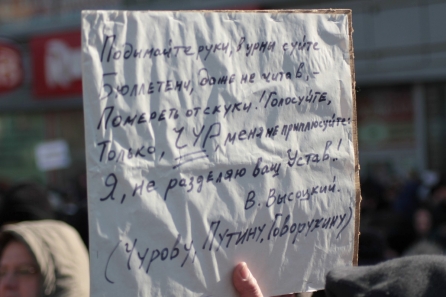 Подымайте руки, в урны суйте
Бюллетени, даже не читав, –
Помереть от скуки! Голосуйте,
Только, ЧУР, меня не приплюсуйте:
Я, не разделяю ваш Устав!
В. Высоцкий.
(Чурову, Путину, Говорухину)